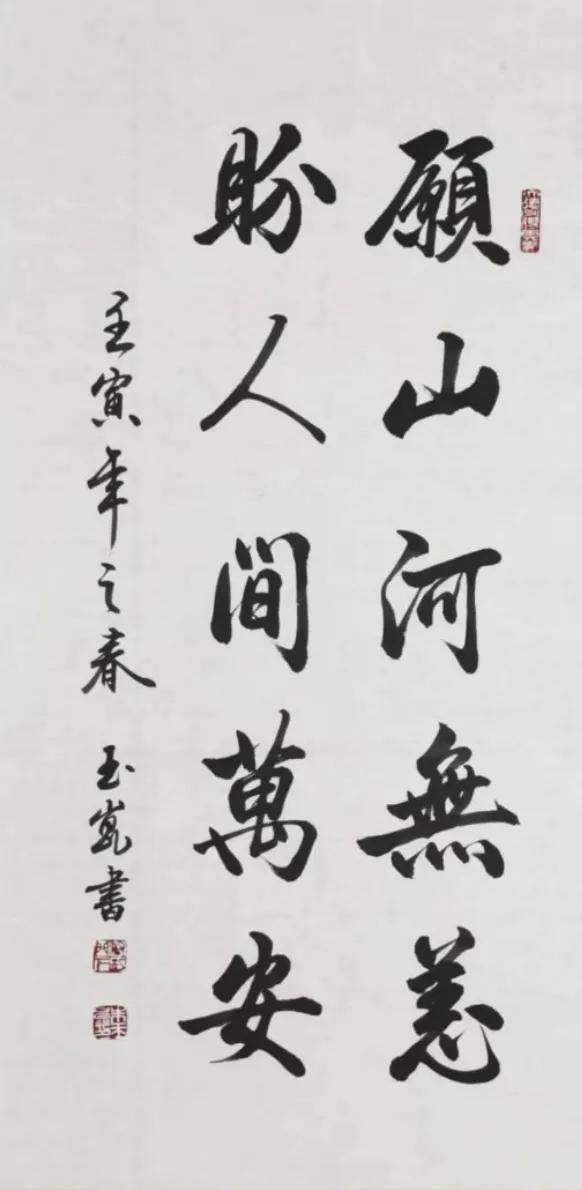 願山河無恙
盼人間萬安
壬寅年之春 玉崑書